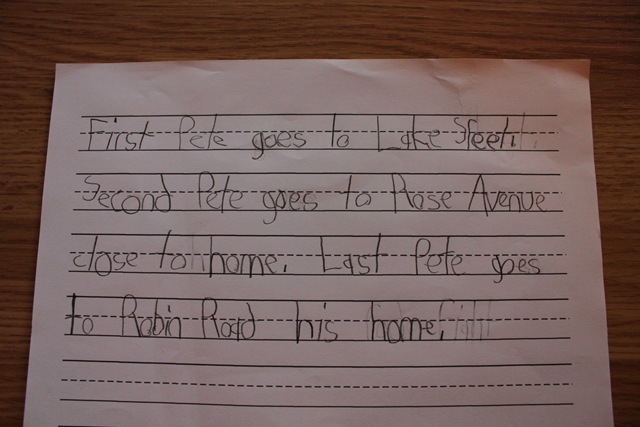 First Pete goes to Lake Sreet.
Second Pete goes to Rose Avenue
close to home. Last Pete goes
to Robin Road his home.